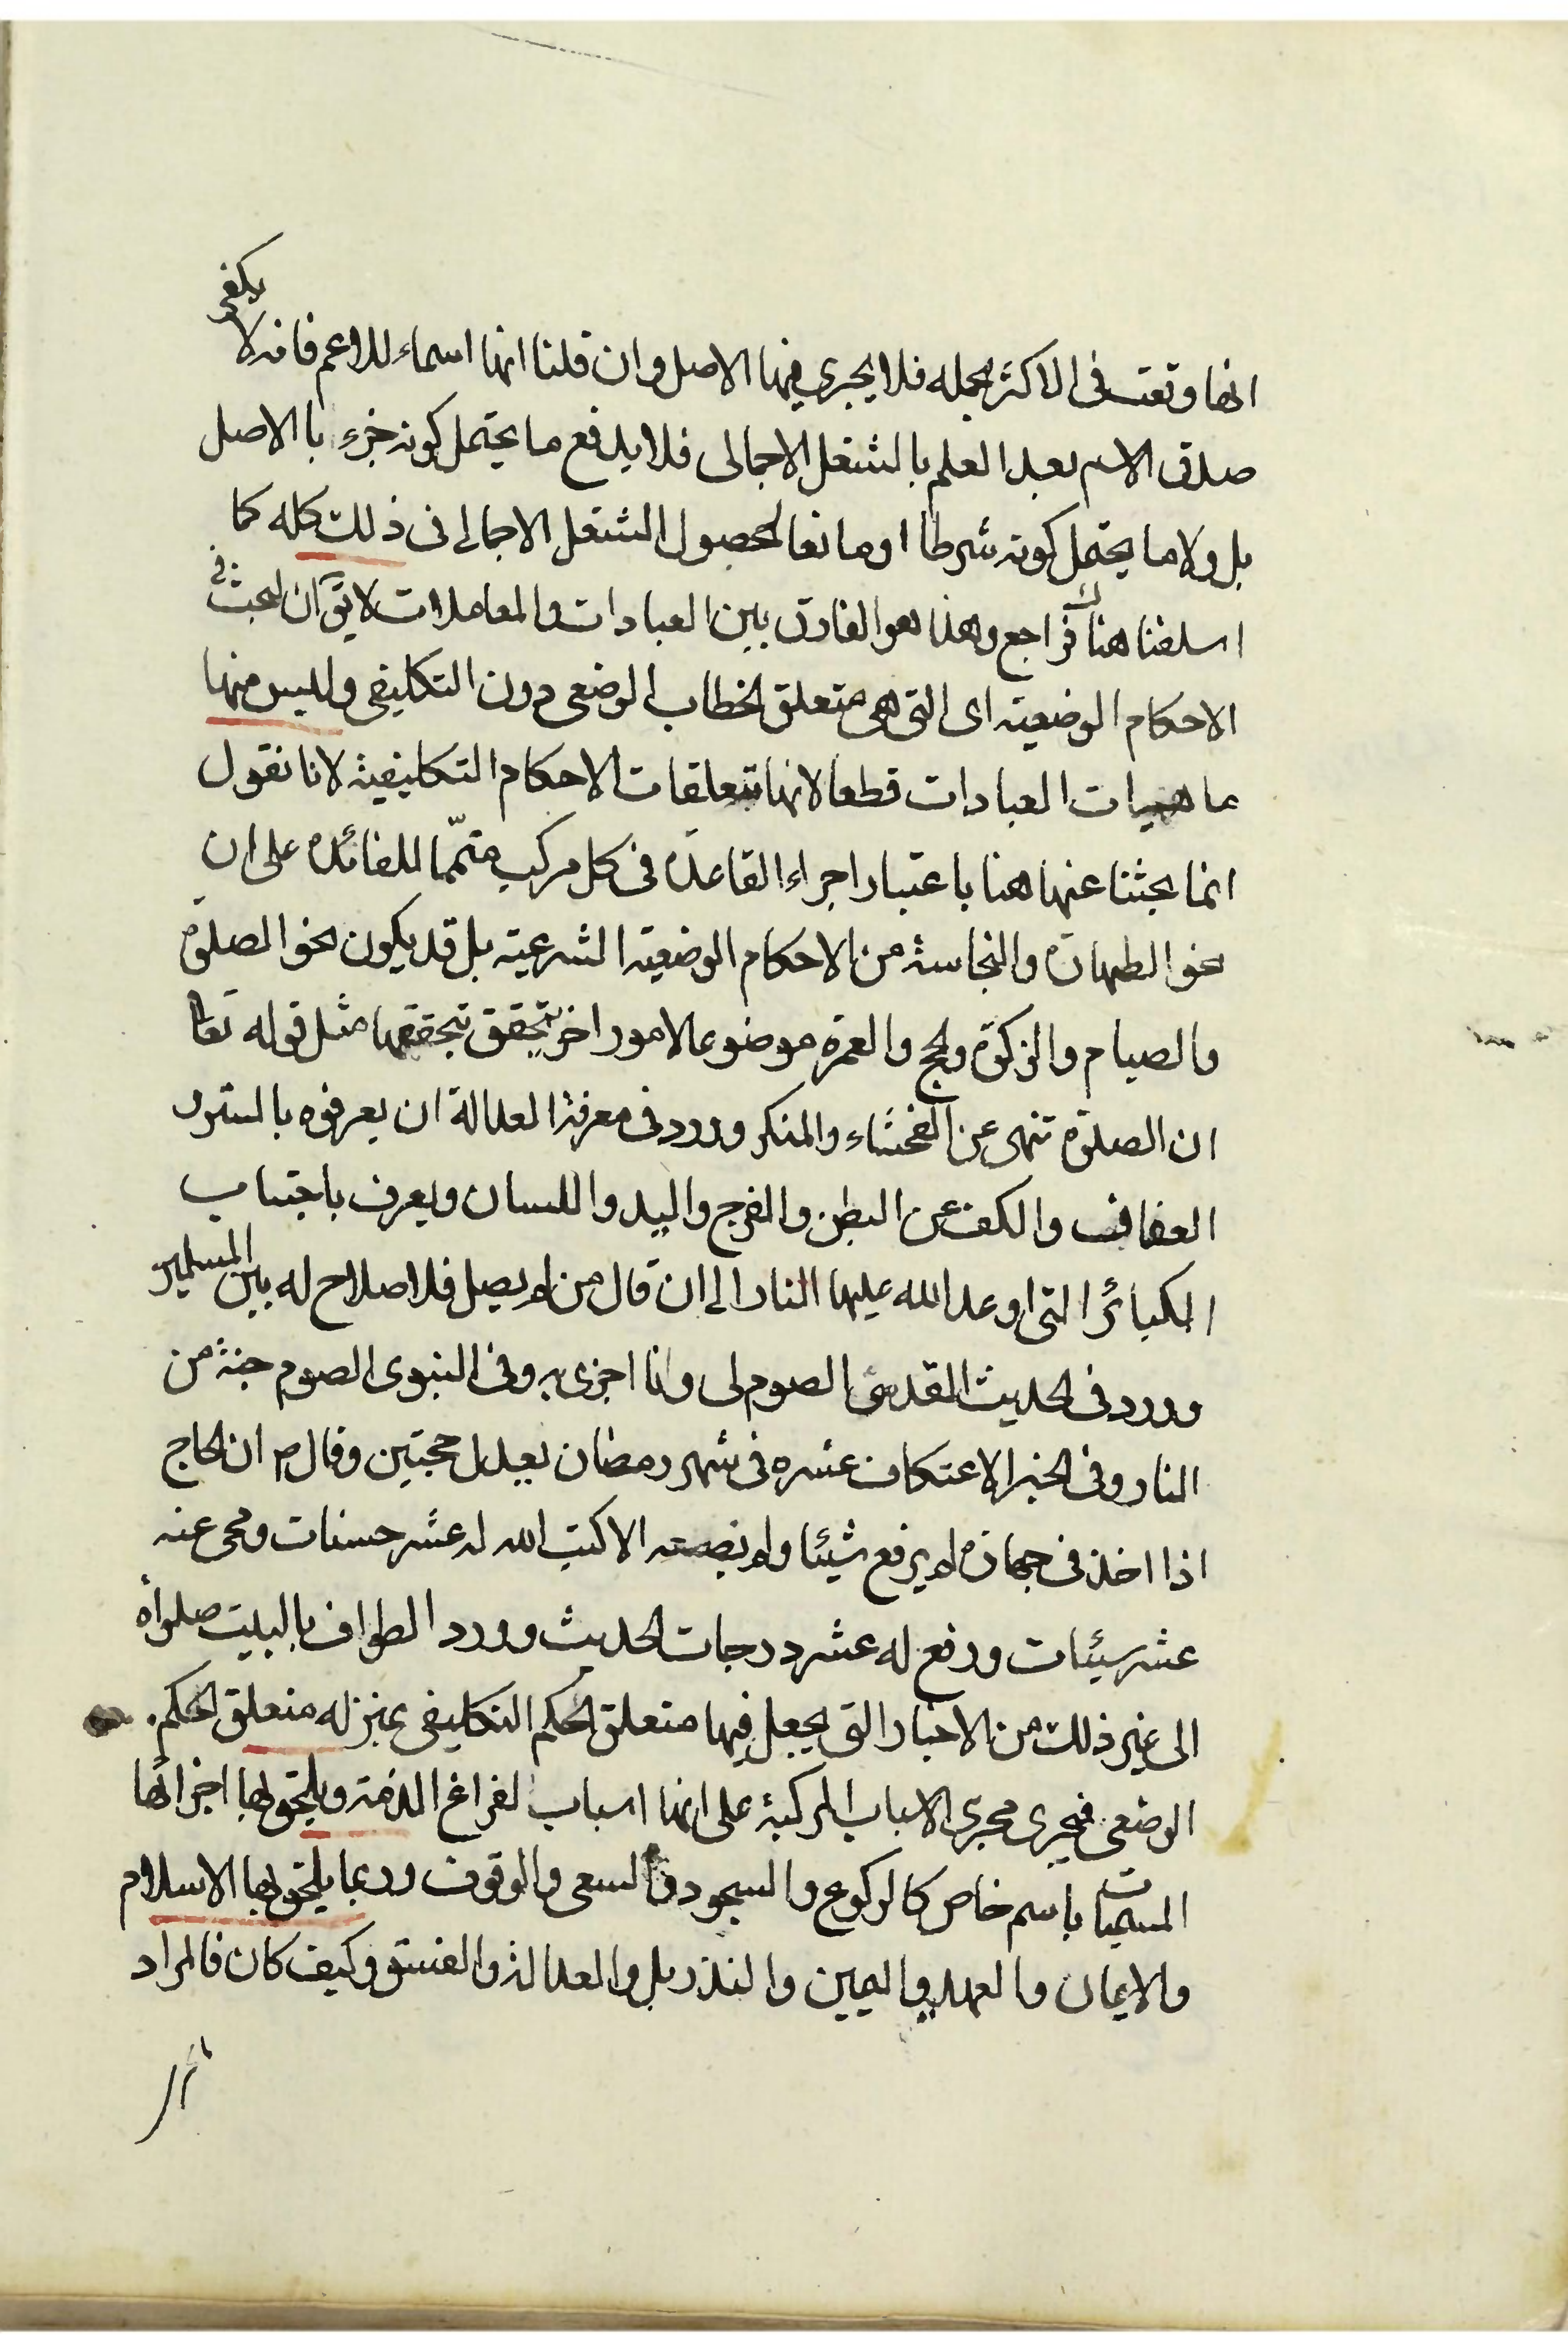 انها وقعت فى الاكثر مجمله فلا يجرى فيها الاصل وان قلنا انها اسماء للاعم فانه لا يكفى
صدق الاسم بعد العلم بالشغل الاجمالى فلا يدفع ما يحتمل كونه جزء بالاصل
بل ولا ما يحتمل كونه شرطا او مانعا لحصول الشغل الاجمالى فى ذلك كله كما
اسلفنا هناك فراجع وهذا هو الفارق بين العبادات والمعاملات لا يق ان البحث فى
الاحكام الوضعيته اى التى هى متعلق الخطاب الوضعى دون التكليفى وليس منها
ماهيات العبادات قطعا لانها متعلقات الاحكام التكليفية لانا نقول
انما بحثنا عنها هنا باعتبار اجراء القاعدة فى كل مركب متمّما للفائدة على ان
نحو الطهارة والنجاسة من الاحكام الوضعيته الشرعيته بل قد يكون نحو الصلوة
والصيام والزكوة والحج والعمرة موضوعا لامور اخر يتحقق بتحققها مثل قوله تعا
ان الصلوة تنهى عن الفحشاء والمنكر وورد فى معرفة العدالة ان يعرفوه بالستر و
العفاف والكف عن البطن والفرج واليد واللسان ويعرف باجتناب
الكبائر التى اوعد الله عليها النار الى ان قال من لم يصل فلا صلاح له بين المسلمين
وورد فى الحديث القدسى الصوم لى وانا اجزى به وفى النبوى الصوم جنة من
النار وفى الخبر الاعتكاف عشره فى شهر رمضان يعدل حجتين وقال ص ان الحاج
اذا اخذ فى جهازه لم يرفع شيئا ولم يضعه الا كتب الله له عشر حسنات ومحى عنه
عشر سيئات ورفع له عشر درجات الحديث وورد الطواف بالبيت صلوة
الى غير ذلك من الاخبار التى يجعل فيها متعلق الحكم التكليفى بمنزله متعلق الحكم
الوضعى فيجرى مجرى الاسباب المركبة على انها اسباب لفراغ الذمة ويلحق بها اجزائها
المسميات باسم خاص كالركوع والسجود والسعى والوقوف وربما يلحق بها الاسلام
والايمان والعهد واليمين والنذر بل والعدالة والفسق وكيف كان فالمراد